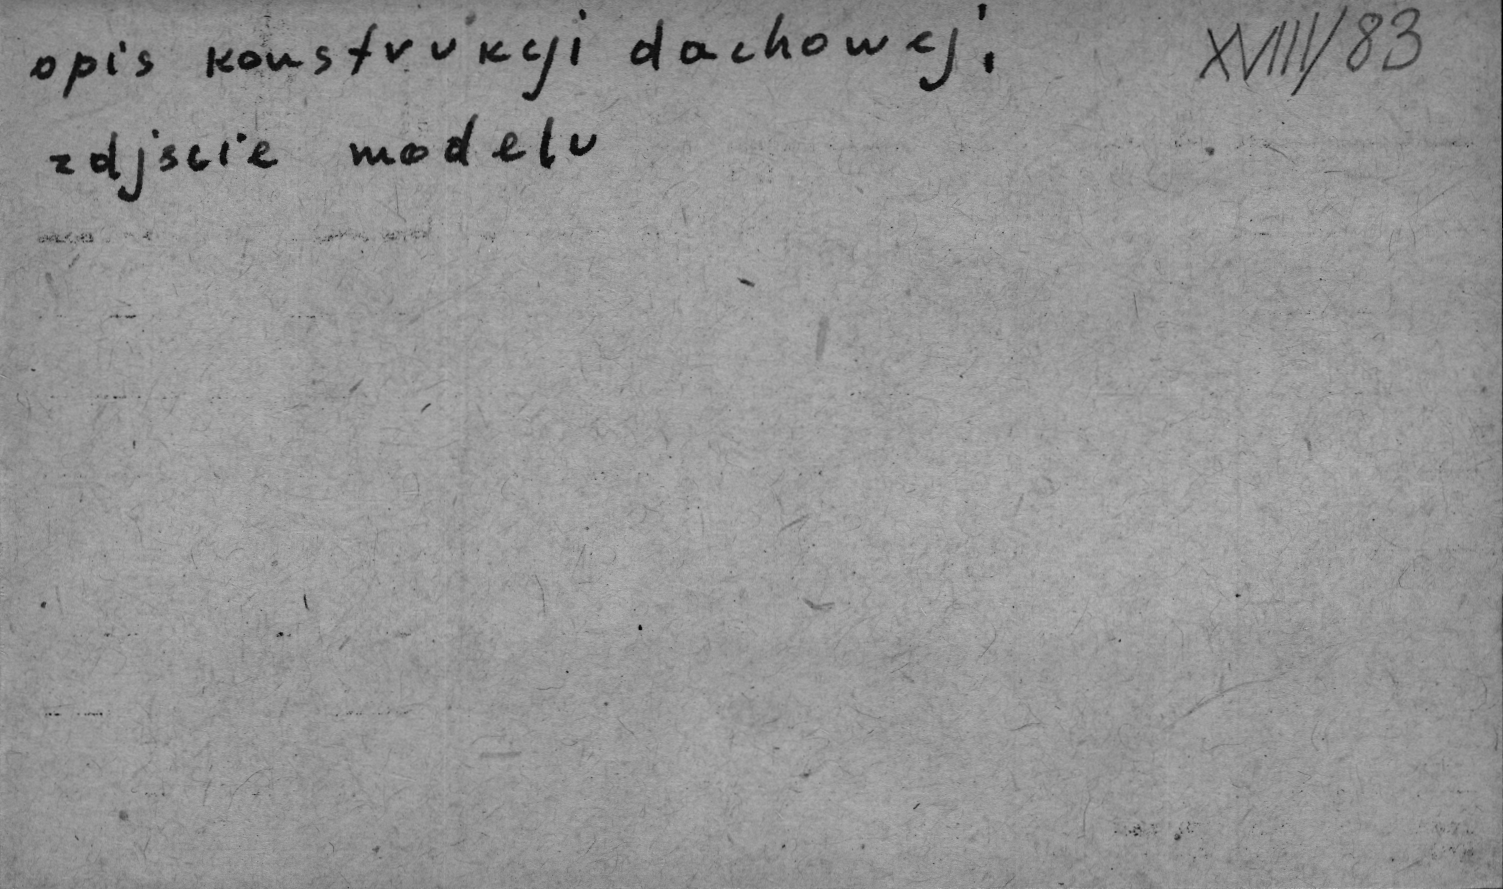 opis konstrukcji dachowej; XVIII/83
zdjscie modelu